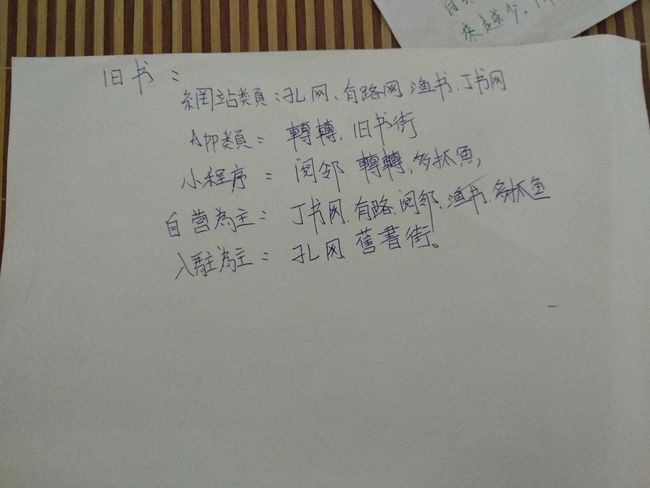 自
来越少.
旧书：
網站類：孔网、有路网 渔书、丁书网
App類：轉轉、旧书街
小程序：阅邻 轉轉、多抓鱼，
自营為主：丁书网、有路、阅邻、渔书、多抓鱼
入駐為主：孔网 舊書街。